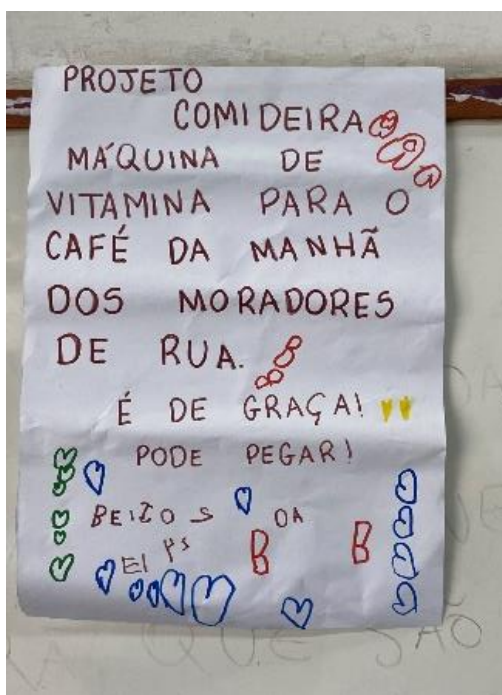 PROJETO
COMIDEIRA
MÁQUINA DE
VITAMINA PARA O
CAFÉ DA MANHÃ
DOS MORADORES
DE RUA.
É DE GRAÇA!
PODE PEGAR!
BEIZOS DA
QUE SÃO